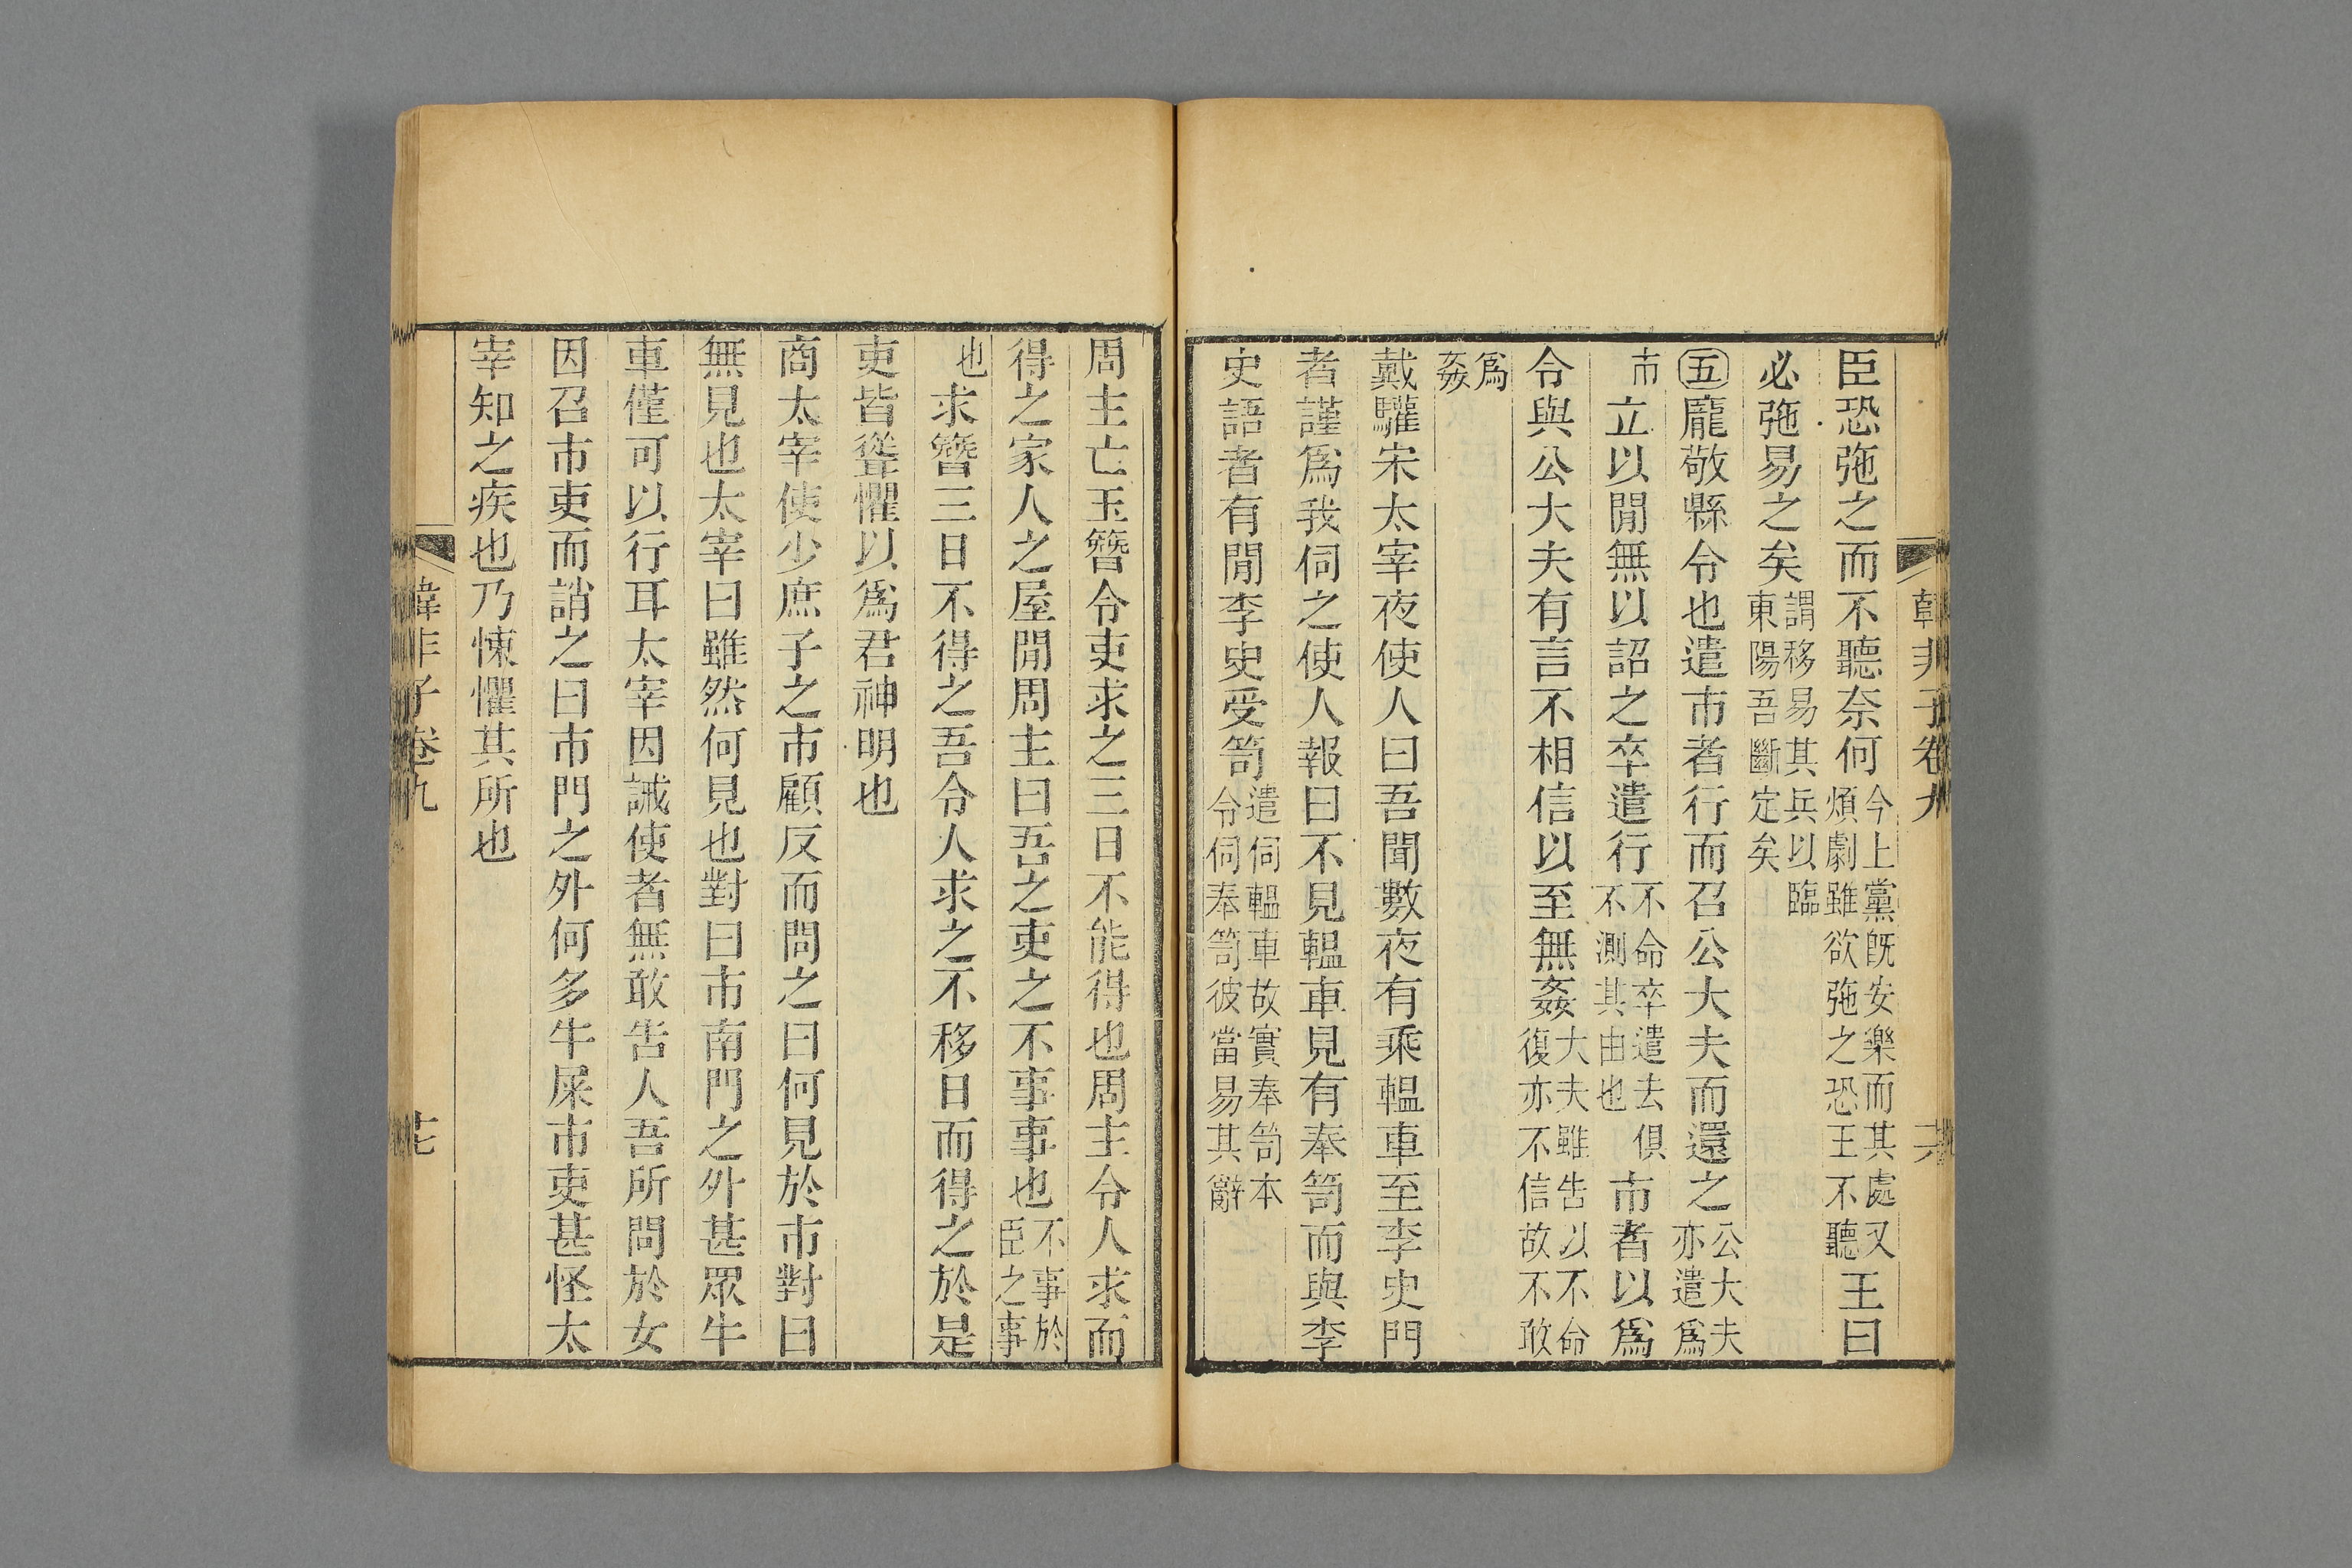 臣恐㢮之而不聽奈何今上黨旣安樂而其處又煩劇雖欲㢮之恐王不聽王曰
必㢮易之矣謂移易其兵以臨東陽吾斷定矣
五龐敬縣令也遣市者行而召公大夫而還之公大夫亦遣爲
市立以閒無以詔之卒遣行不命卒遣去俱不測其由也市者以爲
令與公大夫有言不相信以至無姦大夫雖告以不命復亦不信故不敢
爲姦
戴驩宋太宰夜使人曰吾聞數夜有乘轀車至李史門
者謹爲我伺之使人報曰不見轀車見有奉笥而與李
史語者有閒李史受笥遣伺轀車故實奉笥本令伺奉笥彼當易其辭
韓非子卷九
周主亡玉簪令吏求之三日不能得也周主令人求而
得之家人之屋閒周主曰吾之吏之不事事也不事於臣之事
也求簪三日不得之吾令人求之不移日而得之於是
吏皆聳懼以爲君神明也
商太宰使少庶子之市顧反而問之曰何見於市對曰
無見也太宰曰雖然何見也對曰市南門之外甚眾牛
車僅可以行耳太宰因誡使者無敢告人吾所問於女
因召市吏而誚之曰市門之外何多牛屎市吏甚怪太
宰知之疾也乃悚懼其所也
韓非子卷九